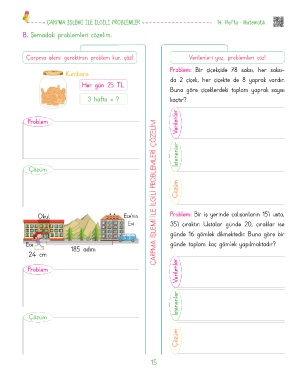 ÇARPMA İŞLEMİ İLE İLGİLİ PROBLEMLER
14. Hafta - Matematik
B. Şemadaki problemleri çözelim.
Çarpma işlemi gerektiren problem kur, çöz!
Kumbara
Her gün 25 TL
3 hafta = ?
Problem
Çözüm
Okul
Esin'in
Evi
Evi
185 adım
24 cm
Problem
Çözüm
ÇARPMA İŞLEMİ İLE İLGİLİ PROBLEMLERİ ÇÖZELİM
Verilenleri yaz, problemleri çöz!
Problem: Bir çiçekçide 78 saksı, her saksı-
da 2 çiçek, her çiçekte de 8 yaprak vardır.
Buna göre çiçeklerdeki toplam yaprak sayısı
kaçtır?
Verilenler
İstenenler
Çözüm
Problem: Bir iş yerinde çalışanların 15'i usta,
35'i çıraktır. Ustalar günde 20, çıraklar ise
günde 16 gömlek dikmektedir. Buna göre bir
günde toplam kaç gömlek yapılmaktadır?
Verilenler
İstenenler
Çözüm
15